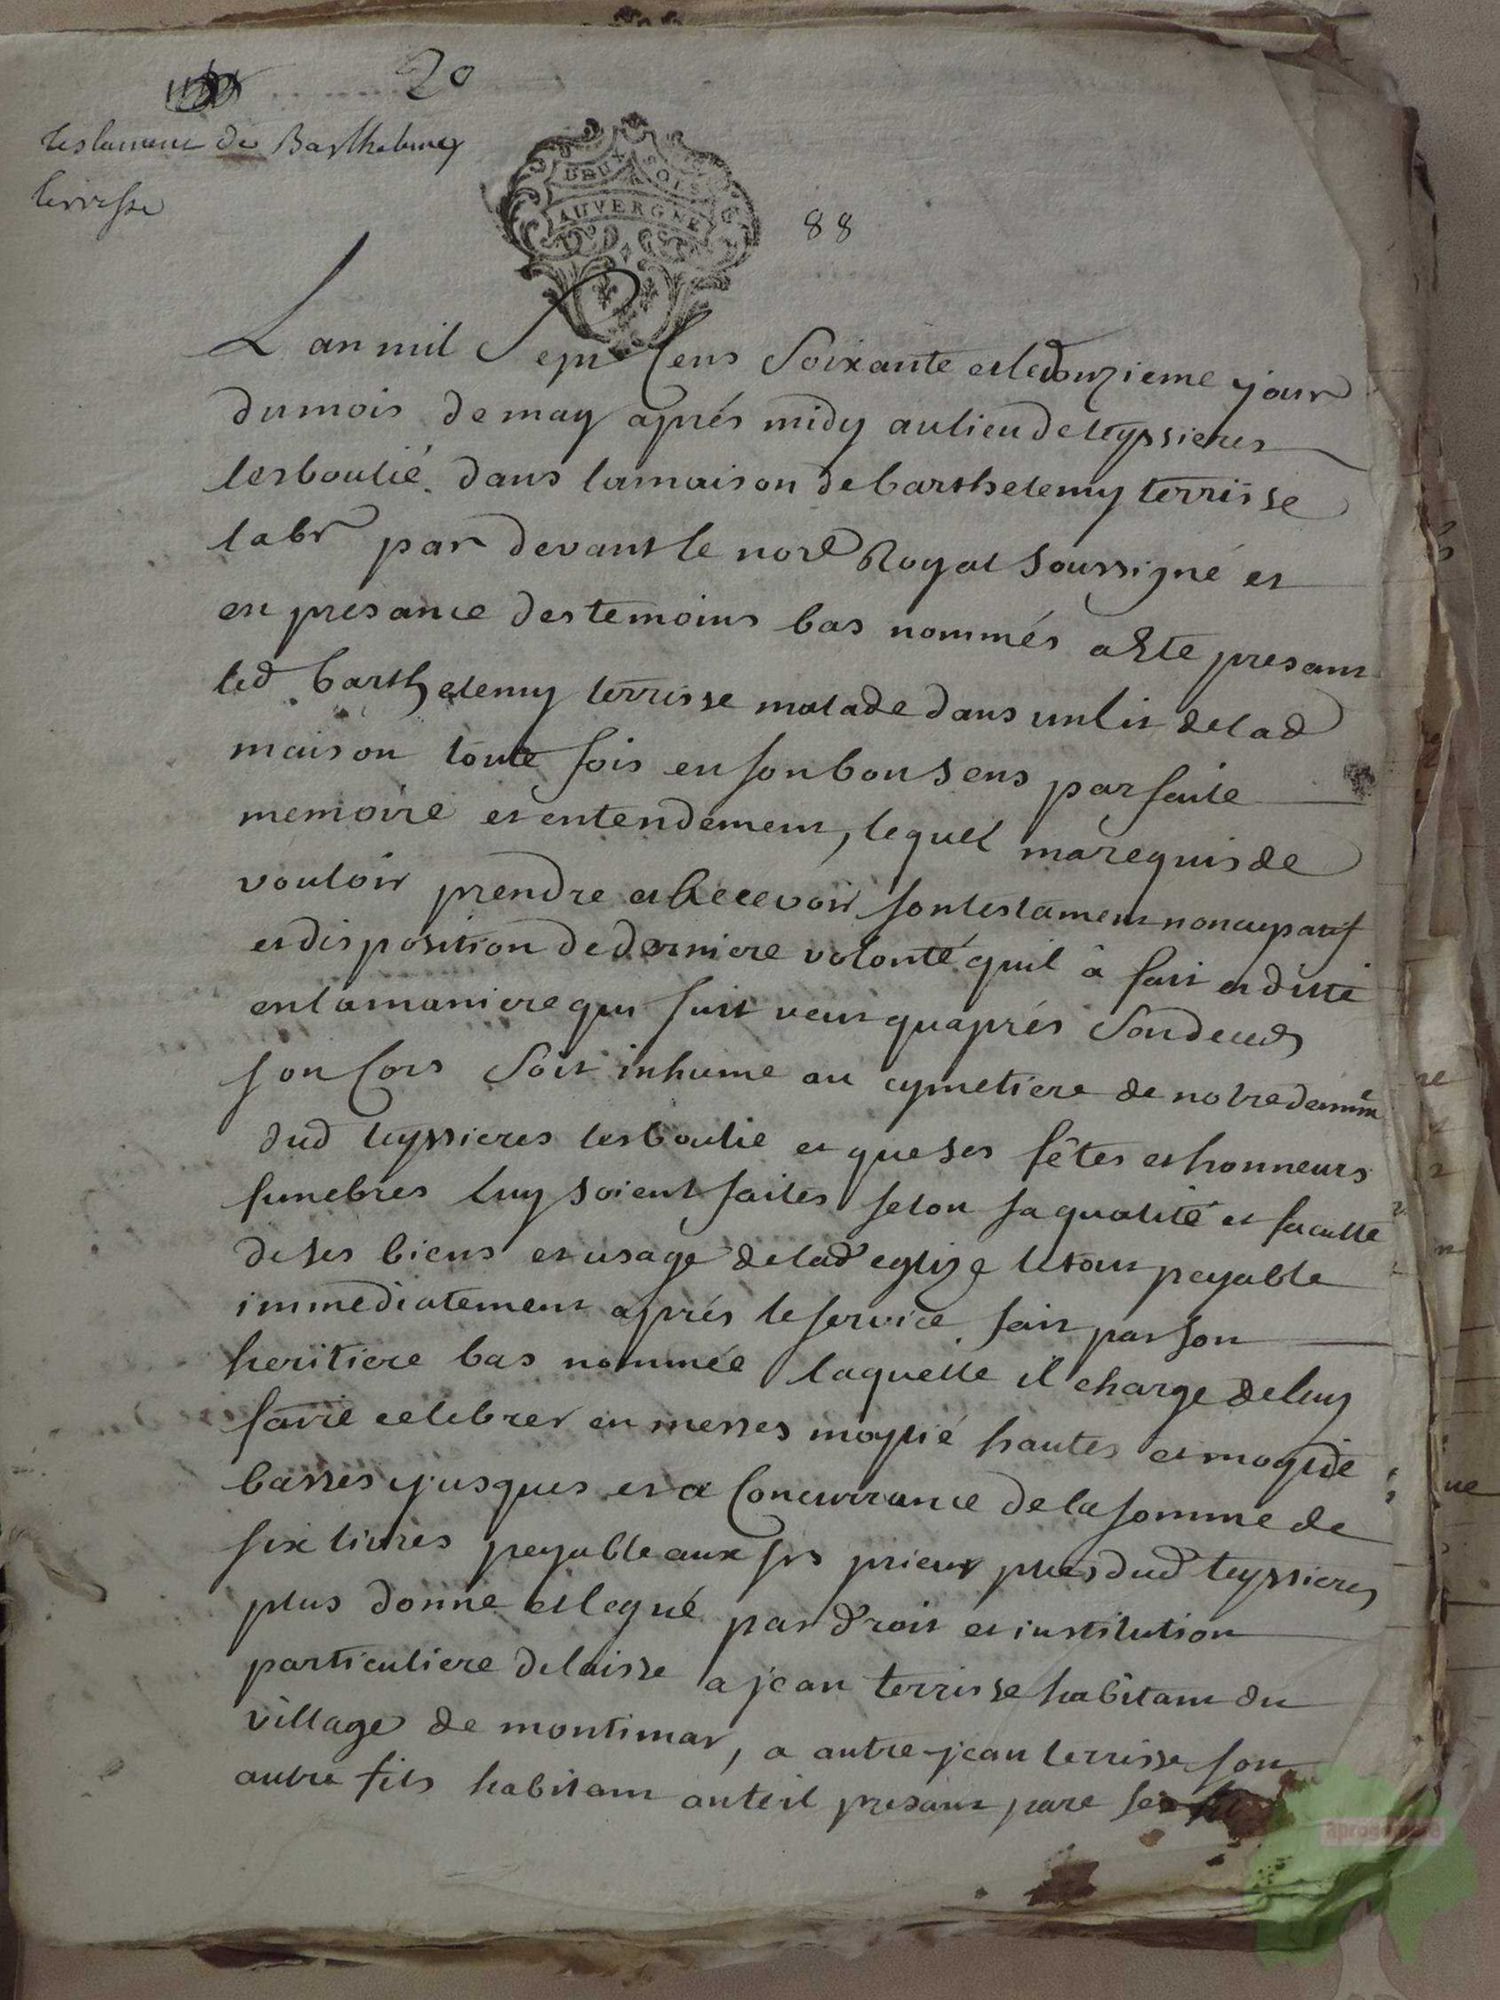 20
testament de Barthelemy
terrisse
DEUX SOLS
AUVERGNE
88
L an mil Sept Cens Soixante et le douzieme jour
du mois de may aprés midy au lieu de teyssieres
les boulié dans la maison de barthelemy terrisse
labr par devant le nore Royal soussigné et
en presance des temoins bas nommés a Eté presant
led barthelemy terrisse malade dans un lit de lad
maison toute fois en son bon sens parfaite
memoire et entendement, lequel ma requis de
vouloir prendre et Recevoir son testament noncupatif
et disposition de derniere volonté quil à fait et dicté
en la maniere qui suit veut quaprés Son deceds
son Cors Soit inhume au cymetiere de notre dame
dud teyssieres les boulie et que ses fêtes et honneurs
funebres Luy soient faites selon sa qualité et faculté
de ses biens et usage de lad eglize le tout payable
immediatement aprés le service fait par son
heritiere bas nommée laquelle il charge de luy
faire celebrer en messes moytié hautes et moytié
basses jusques et a Concurrance de la somme de
six livres payable aux srs prieur ptres dud teyssieres
plus donne et legué par droit et institution
particuliere delaisse a jean terrisse habitant du
village de montimar, a autre jean terrisse son
autre fils habitant auteil presant pare
aprogemere